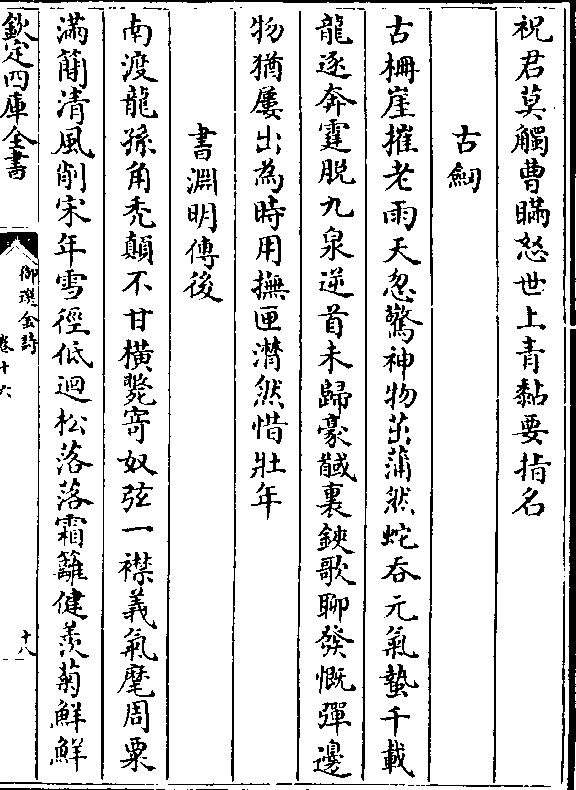 祝君莫觸曹瞞怒世上青黏要指名
古劒
古柵崖摧老雨天忽驚神物茁蒲然蛇吞元氣蟄千載
龍逐奔霆脱九泉逆首未歸豪馘裏鋏歌聊發慨彈邊
物猶屢出為時用撫匣潸然惜壯年
書淵明傳後
南渡龍孫角禿顛不甘橫斃寄奴弦一襟義氣麾周粟
滿蕳清風削宋年雪徑低迴松落落霜籬健羨菊鮮鮮
欽定四庫全書
御選金詩
卷十六
十八